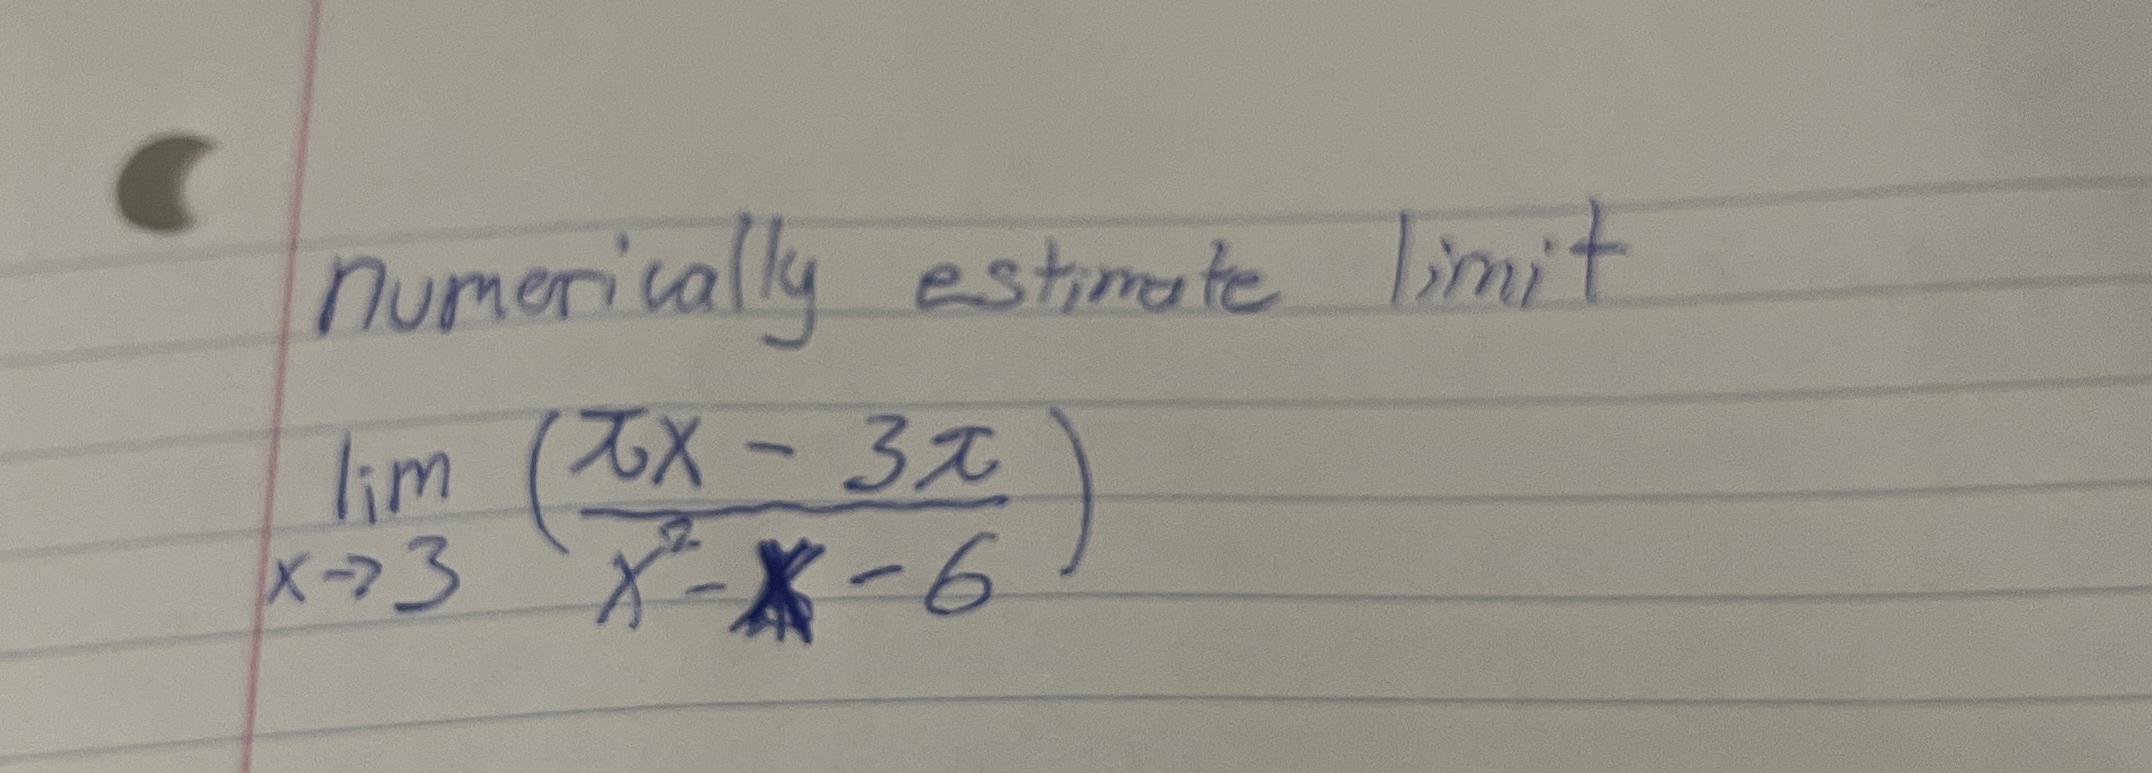 numerically estimate limit
lim (πx - 3π / x² - x - 6)
x→3